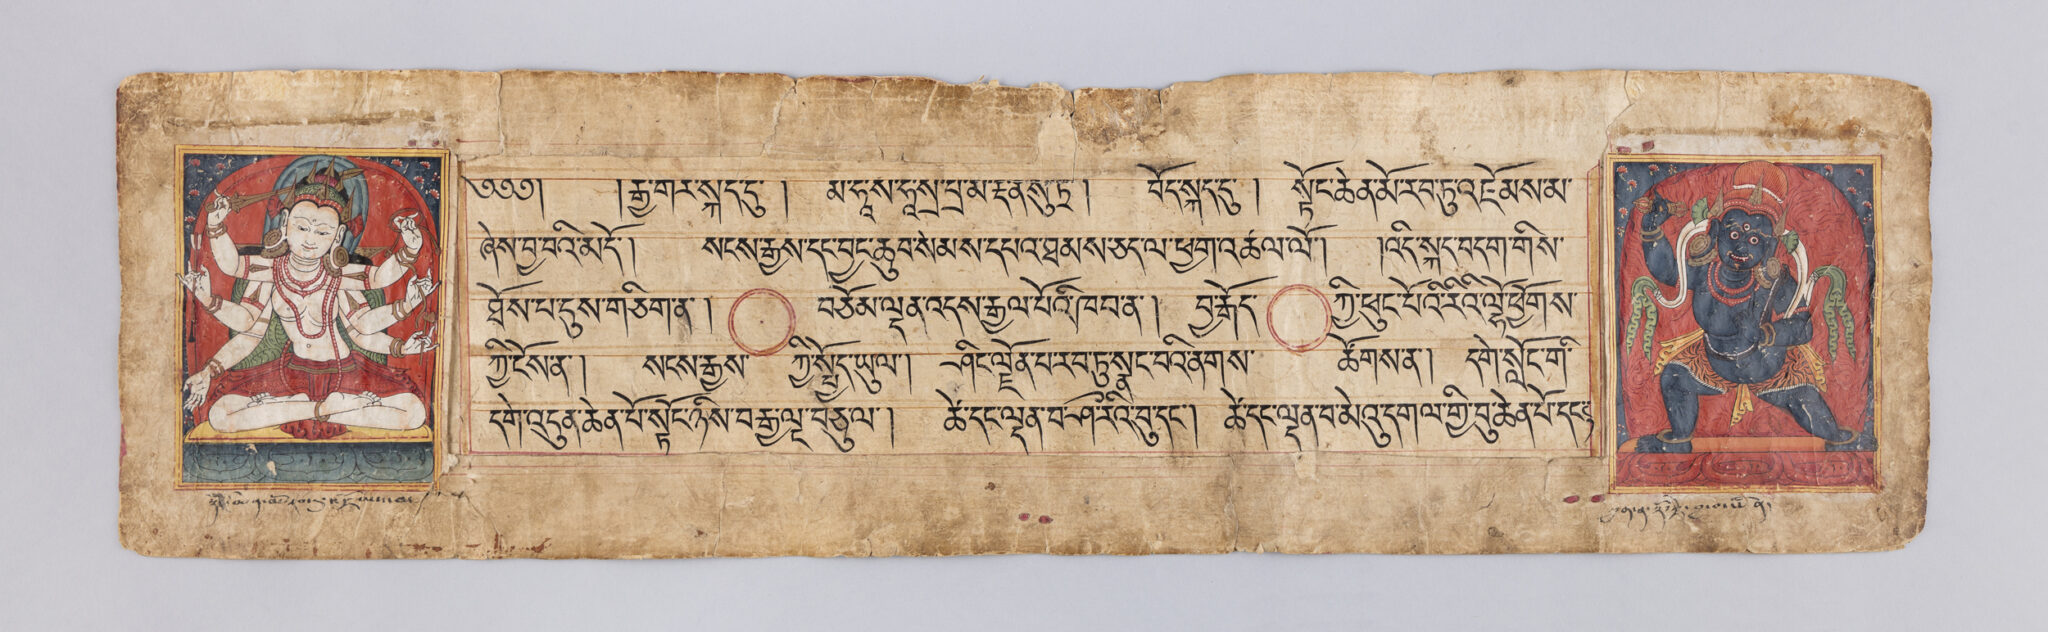 ༄༅༅། །རྒྱ་གར་སྐད་དུ། མ་ཧཱ་ས་ཧཱ་སྲ་པྲ་མ་རྡ་ན་སུ་ཏྲ། བོད་སྐད་དུ། སྟོང་ཆེན་མོ་རབ་ཏུ་འཇོམས་མ་
ཞེས་བྱ་བའི་མདོ། སངས་རྒྱས་དང་བྱང་ཆུབ་སེམས་དཔའ་ཐམས་ཅད་ལ་ཕྱག་འཚལ་ལོ། །འདི་སྐད་བདག་གིས་
ཐོས་པ་དུས་གཅིག་ན། བཅོམ་ལྡན་འདས་རྒྱལ་པོའི་ཁབ་ན། བྱ་རྒོད་ ཀྱི་ཕུང་པོའི་རིའི་ལྷོ་ཕྱོགས་
ཀྱི་ངོས་ན། སངས་རྒྱས་ ཀྱི་སྤྱོད་ཡུལ། ཤིང་ལྗོན་པ་རབ་ཏུ་སྣང་བའི་ནགས་ ཚོགས་ན། དགེ་སློང་གི་
དགེ་འདུན་ཆེན་པོ་སྟོང་ཉིས་བརྒྱ་ལྔ་བཅུ་ལ། ཚེ་དང་ལྡན་བ་ཤ་རིའི་བུ་དང་། ཚེ་དང་ལྡན་བ་མེའུ་དགལ་གྱི་བུ་ཆེན་པོ་དང་